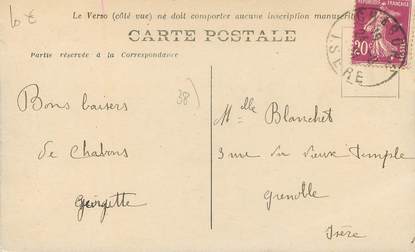 10 €
Le Verso (côté vue) ne doit comporter aucune inscription manuscrite
CARTE POSTALE
Partie réservée à la Correspondance
REPUBLIQUE FRANÇAISE
20c
POSTES
ISERE
38)
Bons baisers
de Chabons
Georgette
Melle Blanchet
3 rue du vieux temple
Grenoble
Isère